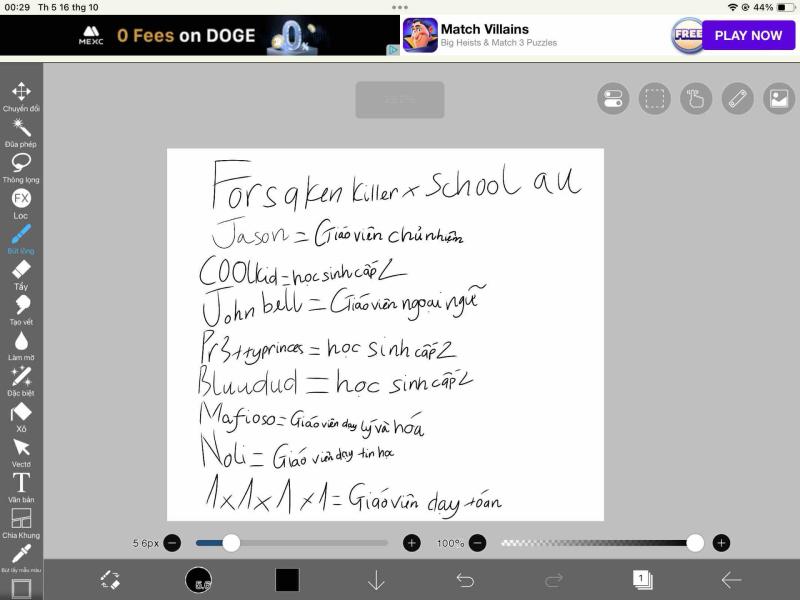 00:29 Th 5 16 thg 10
44%
MEXC
0 Fees on DOGE
0%
Match Villains
Big Heists & Match 3 Puzzles
FREE
PLAY NOW
Chuyển đổi
Đũa phép
Thòng lọng
FX
Lọc
Bút lông
Tẩy
Tạo vết
Làm mờ
Đặc biệt
Xô
Vectơ
T
Văn bản
Chia Khung
Bút lấy mẫu màu
Forsaken killer x School au
Jason = Giáo viên chủ nhiệm
C00lkid = học sinh cấp 2
John bell = Giáo viên ngoại ngữ
Pr3ttyprinces = học sinh cấp 2
Bluudud = học sinh cấp 2
Mafioso = Giáo viên dạy lý và hóa
Noli = Giáo viên dạy tin học
1x1x1x1 = Giáo viên dạy toán
5.6px
100%
5.6
1